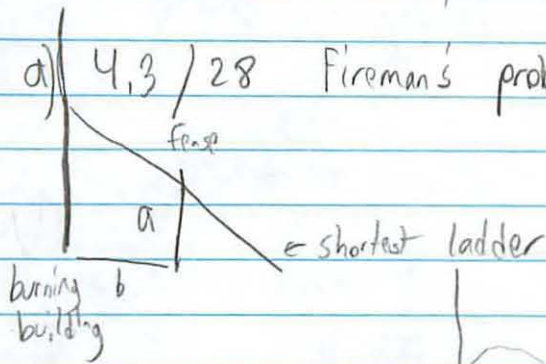 a) 4,3 / 28 Fireman's prob
fense
a
← shortest ladder
b
burning
building